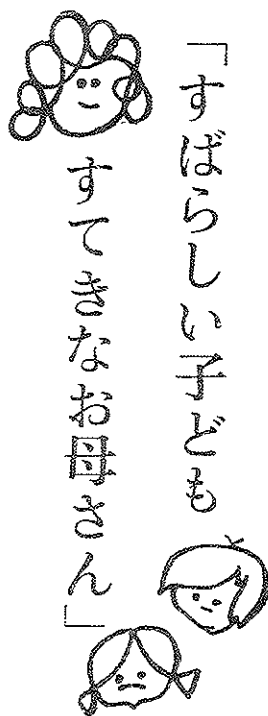 「すばらしい子ども
すてきなお母さん」